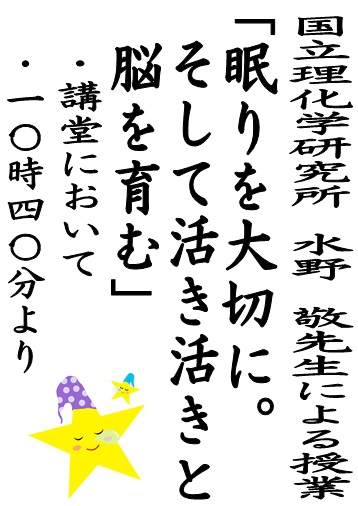 国立理化学研究所　水野　敬先生による授業
「眠りを大切に。
そして活き活きと
脳を育む」
・講堂において
・一〇時四〇分より